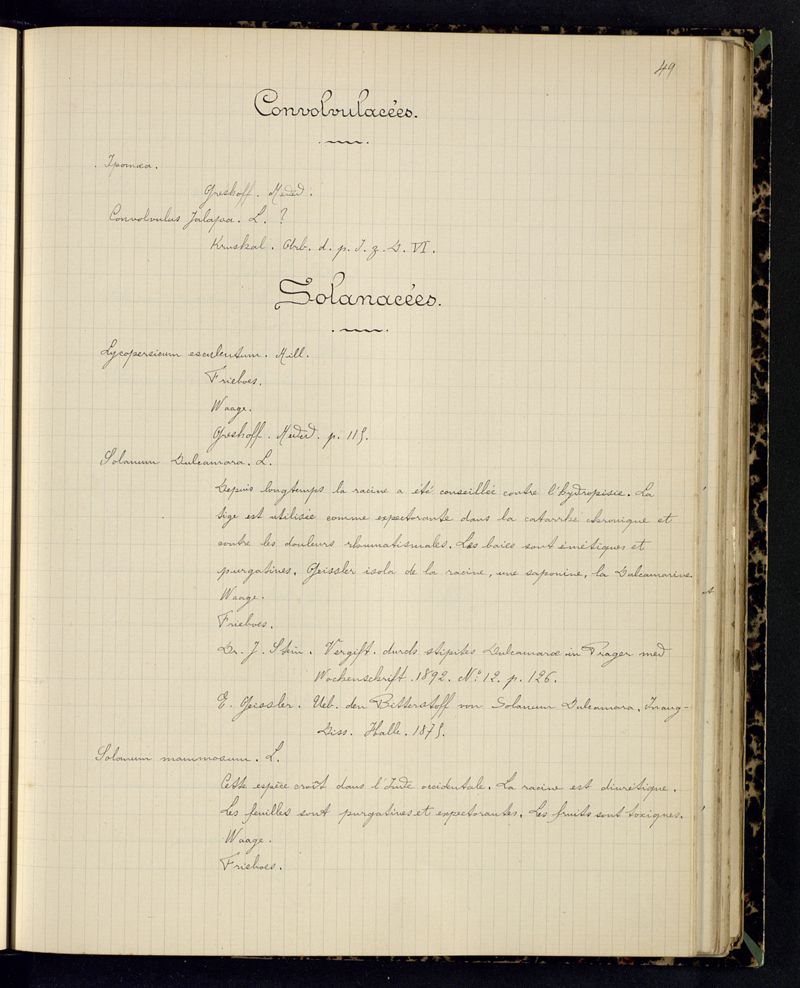 49
Convolvulacées.
Ipomœa.
Greshoff. Meded.
Convolvulus Jalapa. L. ?
Kruskal. Arb. d. p. I. z. D. VI.
Solanacées.
Lycopersicum esculentum. Mill.
Frieboes.
Waage.
Greshoff. Meded. p. 115.
Solanum Dulcamara. L.
Depuis longtemps la racine a été conseillée contre l'hydropisie. La
tige est utilisée comme expectorante dans la catarrhe chronique et
contre les douleurs rhoumatismales. Les baies sont émétiques et
purgatives. Geissler isola de la racine, une saponine, la Dulcamarine.
Waage.
Frieboes.
Dr. J. Stein. Vergift. durch stipites Dulcamaræ in Prager med
Wochenschrift. 1892. No. 12. p. 126.
E. Geissler. Ueb. den Bitterstoff von Solanum Dulcamara. Inaug-
Diss. Halle. 1875.
Solanum mammosum. L.
Cette espèce croît dans l'Inde occidentale. La racine est diurétique.
Les feuilles sont purgatives et expectorantes. Les fruits sont toxiques.
Waage.
Frieboes.